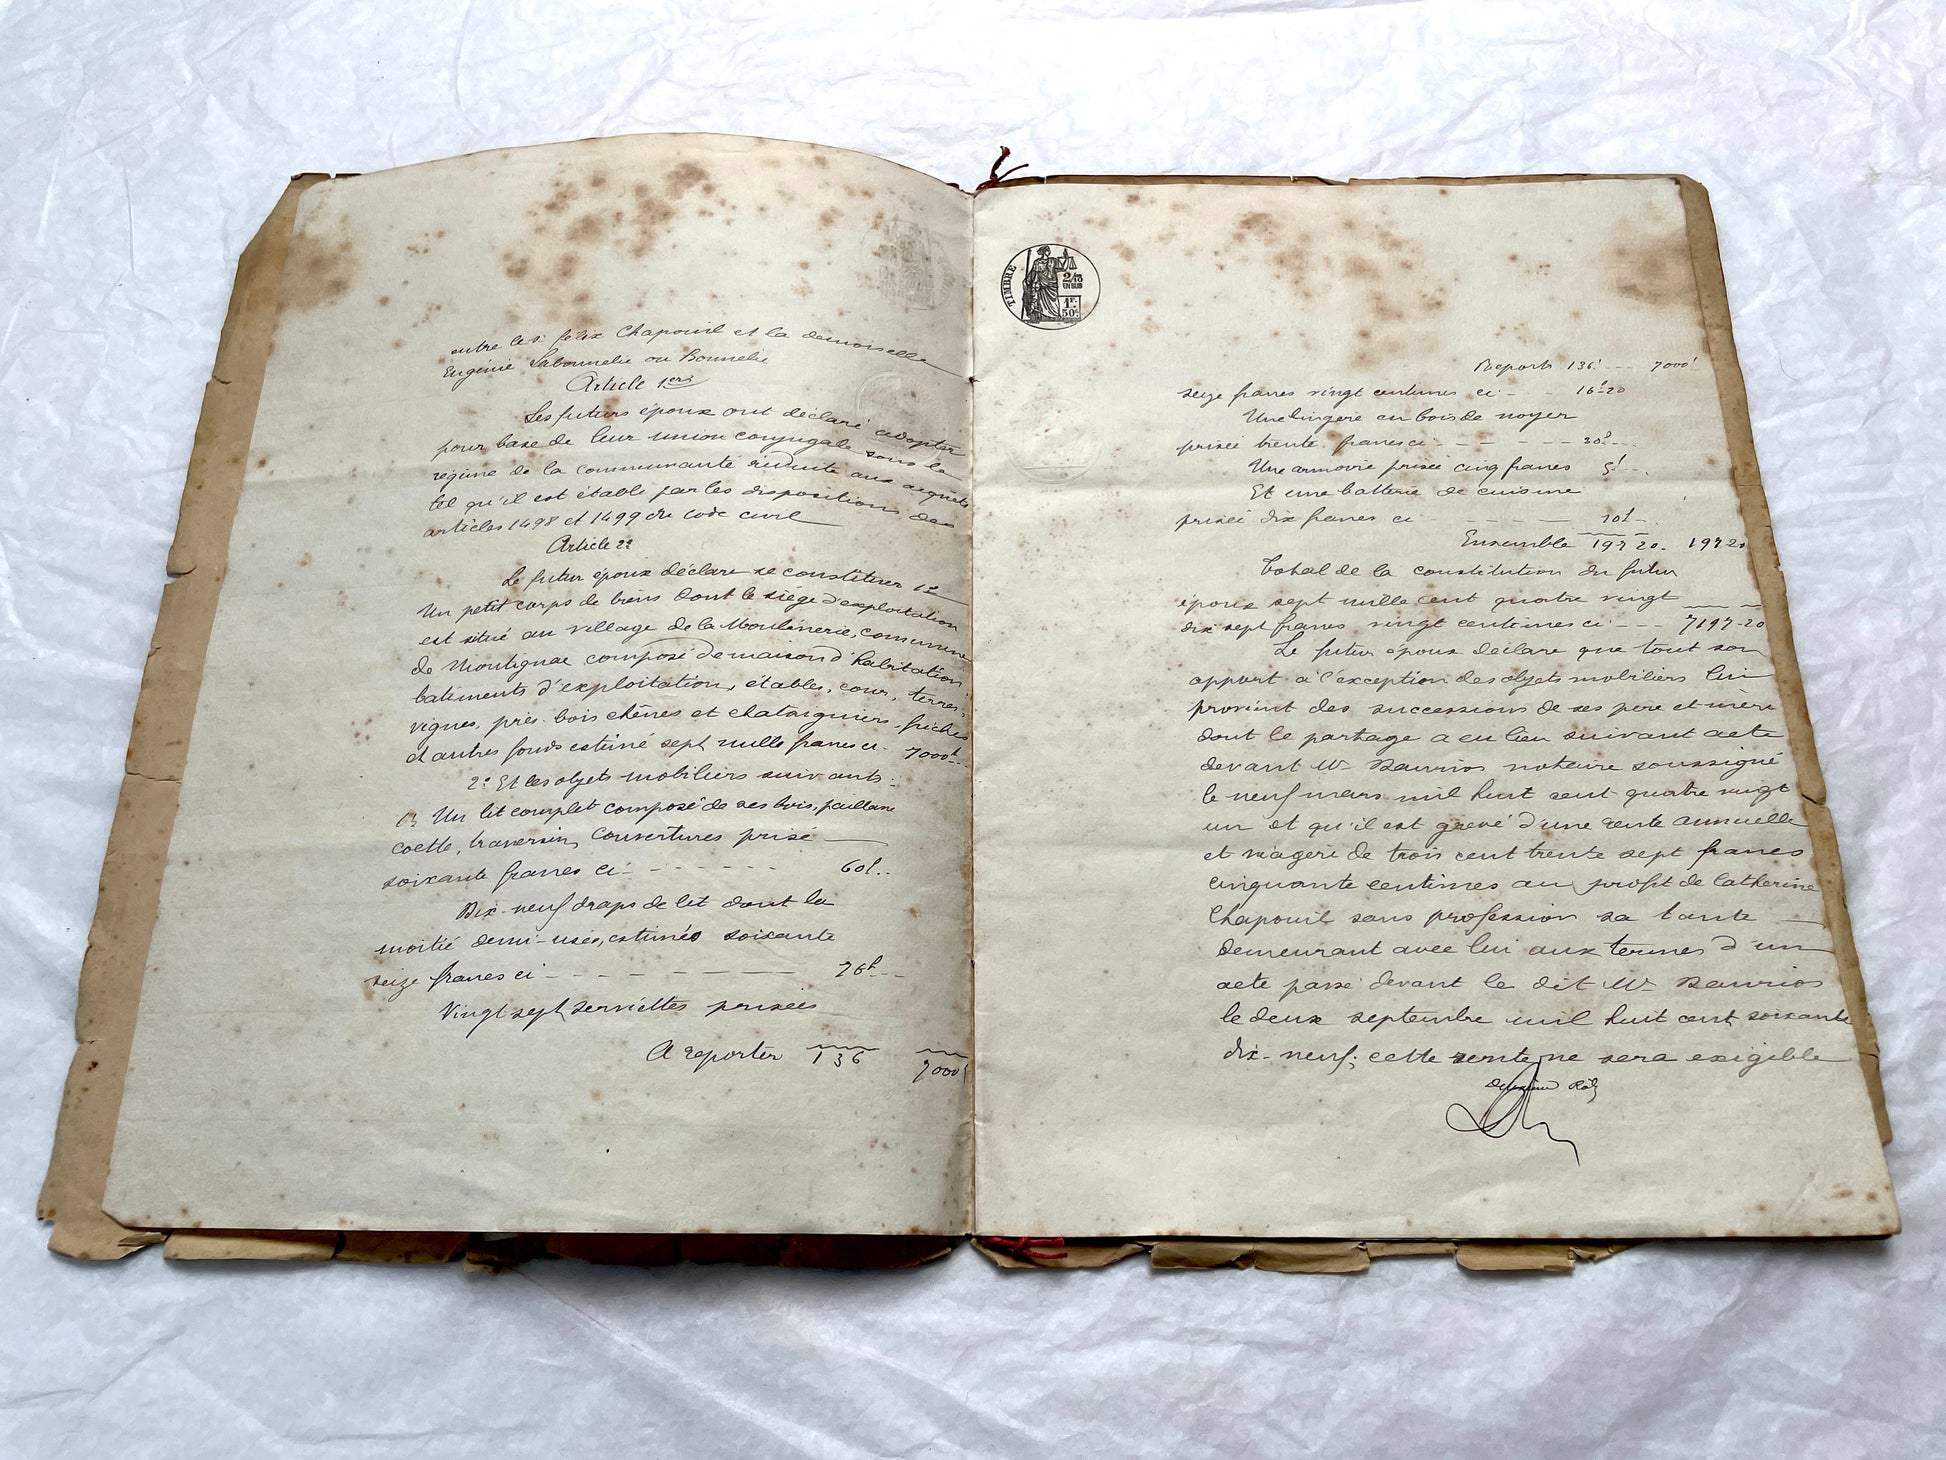 entre le sr. félix Chapouil et la demoiselle
Eugénie Labonnelie ou Bonnelie
Article 1er
Les futurs époux ont déclaré adopter
pour base de leur union conjugale sous le
régime de la communauté réduite aux acquets
tel qu'il est établi par les dispositions des
articles 1498 et 1499 du code civil
Article 2e
Le futur époux déclare se constituer 1º
Un petit corps de biens dont le siège d'exploitation
est situé au village de la Moulinerie, commune
de Montignac composé de maison d'habitation,
batiments d'exploitation, étables, cour, terres,
vignes, près, bois chênes et chataigniers, friches
et autres fonds estimé sept mille francs ci. 7000f..
2º Et les objets mobiliers suivants:
Un lit complet composé de ses bois, paillasse
coette, traversin, couvertures prisé
soixante francs ci - - - - - 60f..
Dix-neuf draps de lit dont la
moitié demi-usés, estimés soixante
seize francs ci - - - - - 76f - -
Vingt sept serviettes prisées
A reporter 136 7000f
TIMBRE
2/10
EN SUS
1F.
50c.
Reports 136f. - - - 7000f
seize francs vingt centimes ci - - 16f-20
Une lingère en bois de noyer
prisée trente francs ci - - - - - 30f - - -
Une armoire prisée cinq francs 5f - -
Et une batterie de cuisine
prisée dix francs ci - - - - - 10f - -
Ensemble 197 20. 197 20
Total de la constitution du futur
époux sept mille cent quatre vingt
dix sept francs vingt centimes ci - - - 7197-20
Le futur époux déclare que tout son
apport à l'exception des objets mobiliers lui
provient des successions de ses père et mère
dont le partage a eu lieu suivant acte
devant Me notaire soussigné
le neuf mars mil huit cent quatre vingt
un et qu'il est grevé d'une rente annuelle
et viagère de trois cent trente sept francs
cinquante centimes au profit de Catherine
Chapouil sans profession sa tante
demeurant avec lui aux termes d'un
acte passé devant le dit Me
le deux septembre mil huit cent soixante
dix-neuf; cette rente ne sera exigible